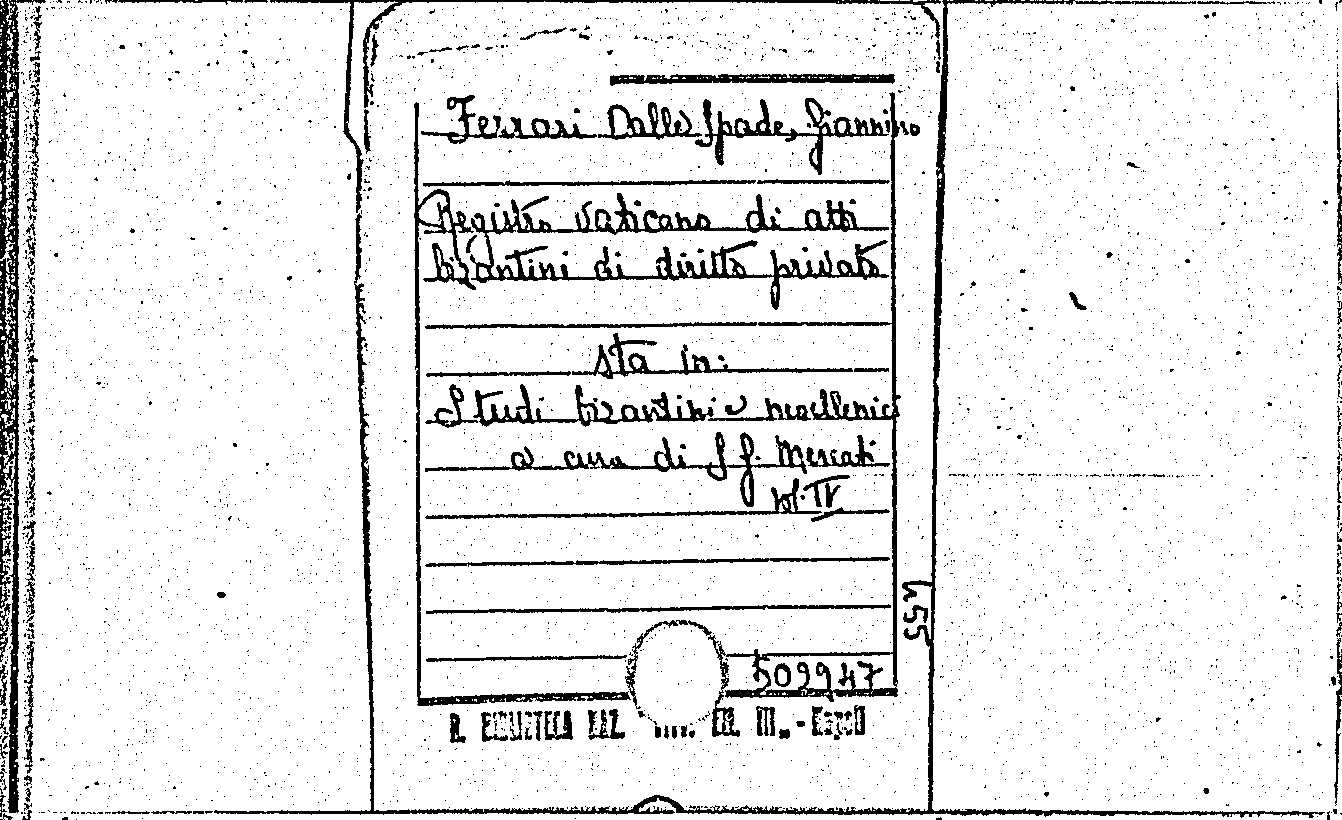 Ferrari Dalle Spade, Giannino
Registro vaticano di atti
bizantini di diritto privato
sta in:
Studi bizantini e neoellenici
a cura di S. G. Mercati
vol. IV
455
509947
R. BIBLIOTECA NAZ. EM. III. - Napoli